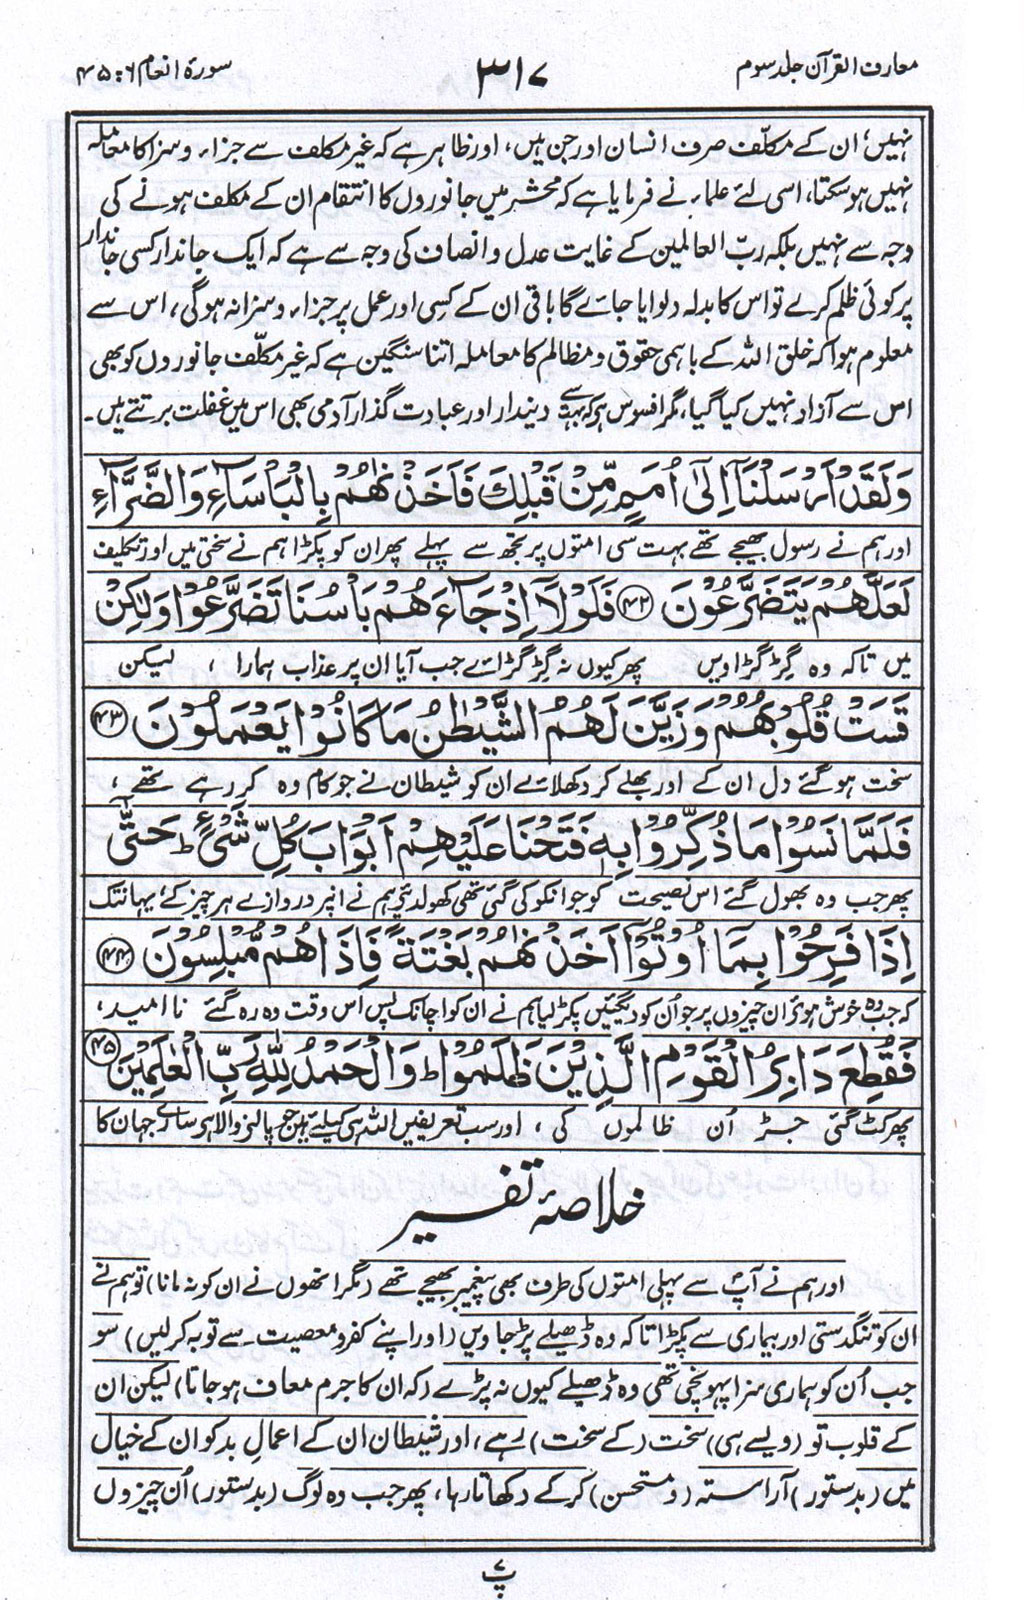 معارف القرآن جلد سوم
۳۱۷
سورۂ انعام ۶: ۴۵
نہیں، ان کے مکلّف صرف انسان اور جن ہیں، اور ظاہر ہے کہ غیر مکلف سے جزاء و سزا کا معاملہ
نہیں ہو سکتا، اسی لئے علماء نے فرمایا ہے کہ محشر میں جانوروں کا انتقام ان کے مکلف ہونے کی
وجہ سے نہیں بلکہ ربّ العالمین کے غایت عدل و انصاف کی وجہ سے ہے کہ ایک جاندار کسی جاندار
پر کوئی ظلم کرے تو اس کا بدلہ دلوایا جائے گا باقی ان کے کسی اور عمل پر جزاء و سزا نہ ہوگی، اس سے
معلوم ہوا کہ خلق اللہ کے باہمی حقوق و مظالم کا معاملہ اتنا سنگین ہے کہ غیر مکلّف جانوروں کو بھی
اس سے آزاد نہیں کیا گیا، مگر افسوس ہو کہ بہت سے دیندار اور عبادت گذار آدمی بھی اس میں غفلت برتتے ہیں۔
وَلَقَدْ اَرْسَلْنَآ اِلٰٓى اُمَمٍ مِّنْ قَبْلِكَ فَاَخَذْنٰهُمْ بِالْبَاْسَآءِ وَالضَّرَّآءِ
اور ہم نے رسول بھیجے تھے بہت سی امتوں پر تجھ سے پہلے پھر ان کو پکڑا ہم نے سختی میں اور تکلیف
لَعَلَّهُمْ يَتَضَرَّعُوْنَ ﴿۴۲﴾ فَلَوْلَآ اِذْ جَآءَهُمْ بَاْسُنَا تَضَرَّعُوْا وَلٰكِنْ
میں تاکہ وہ گِڑ گڑاویں پھر کیوں نہ گِڑ گڑائے جب آیا ان پر عذاب ہمارا ، لیکن
قَسَتْ قُلُوْبُهُمْ وَزَيَّنَ لَهُمُ الشَّيْطٰنُ مَا كَانُوْا يَعْمَلُوْنَ ﴿۴۳﴾
سخت ہوگئے دل ان کے اور بھلے کر دکھلائے ان کو شیطان نے جو کام وہ کر رہے تھے ،
فَلَمَّا نَسُوْا مَا ذُكِّرُوْا بِهٖ فَتَحْنَا عَلَيْهِمْ اَبْوَابَ كُلِّ شَيْءٍ ؕ حَتّٰٓى
پھر جب وہ بھول گئے اس نصیحت کو جو انکو کی گئی تھی کھولدئے ہم نے انپر دروازے ہر چیز کے یہانتک
اِذَا فَرِحُوْا بِمَآ اُوْتُوْٓا اَخَذْنٰهُمْ بَغْتَةً فَاِذَا هُمْ مُّبْلِسُوْنَ ﴿۴۴﴾
کہ جب وہ خوش ہوئے ان چیزوں پر جو اُن کو دیگئیں پکڑ لیا ہم نے ان کو اچانک پس اس وقت وہ رہ گئے نا امید ،
فَقُطِعَ دَابِرُ الْقَوْمِ الَّذِيْنَ ظَلَمُوْا ؕ وَالْحَمْدُ لِلّٰهِ رَبِّ الْعٰلَمِيْنَ ﴿۴۵﴾
پھر کٹ گئی جڑ اُن ظالموں کی ، اور سب تعریفیں اللہ ہی کیلئے ہیں جو پالنے والا ہے سارے جہان کا
خلاصۂ تفسیر
اور ہم نے آپؐ سے پہلی امتوں کی طرف بھی پیغمبر بھیجے تھے (مگر انھوں نے ان کو نہ مانا) تو ہم نے
ان کو تنگدستی اور بیماری سے پکڑا تاکہ وہ ڈھیلے پڑ جاویں (اور اپنے کفر و معصیت سے توبہ کرلیں) سو
جب اُن کو ہماری سزا پہونچی تھی وہ ڈھیلے کیوں نہ پڑے (کہ ان کا جرم معاف ہو جاتا) لیکن ان
کے قلوب تو (ویسے ہی) سخت (کے سخت) رہے، اور شیطان ان کے اعمالِ بد کو ان کے خیال
میں (بدستور) آراستہ (و مستحسن) کرکے دکھاتا رہا، پھر جب وہ لوگ (بدستور) اُن چیزوں